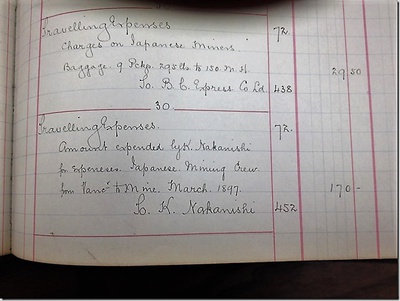 Travelling Expenses 72.
Charges on Japanese Miners.
Baggage. 9 Pckgs. 295 lbs to 150 M.H. 29.50
To. B.C. Express Co Ld. 438
30.
Travelling Expenses. 72.
Amount expended by K. Nakanishi
for Expenses. Japanese Mining Crew
from "Vanc" to Mine. March. 1897. 170 -
To. K. Nakanishi 452